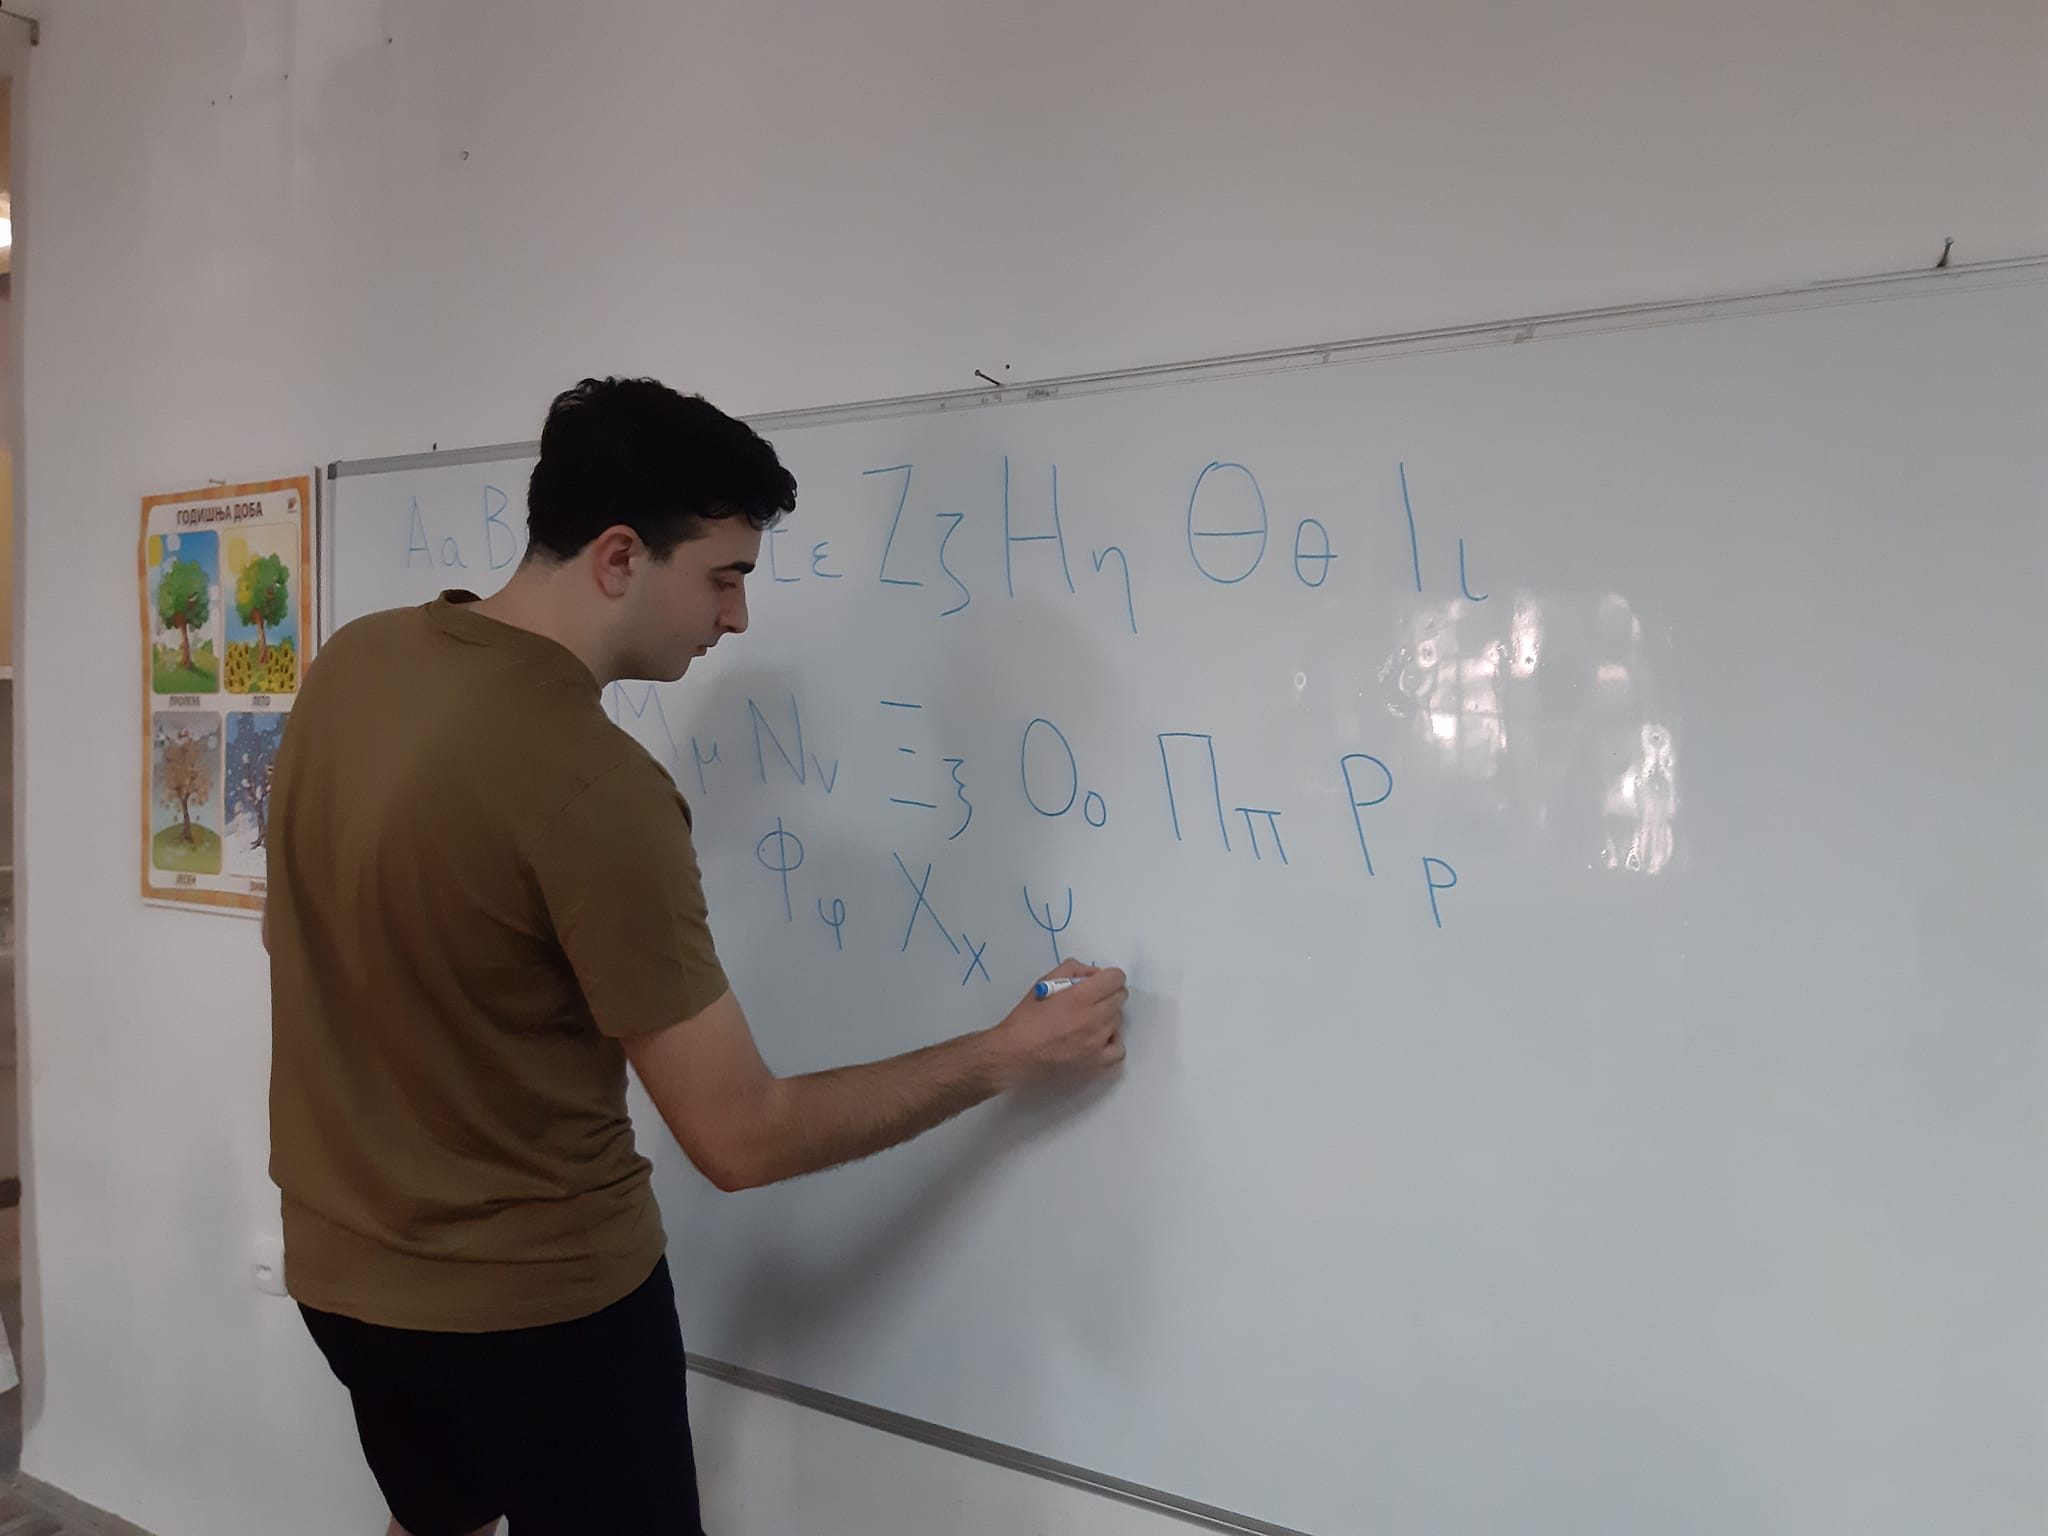 ГОДИШЊА ДОБА
ПРОЛЕЋЕ ЛЕТО
ЈЕСЕН
Α α Β Ε ε Ζ ζ Η η Θ θ Ι ι
Μ μ Ν ν Ξ ξ Ο ο Π π Ρ ρ
Φ φ Χ χ Ψ